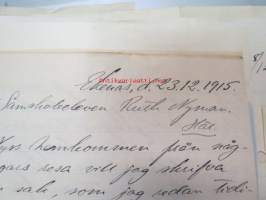 Ekenäs, d. 23.12.1915.
Ruth Nyman.
Här.
Nyss hemkommen från någ-
resa vill jag skrifva
sak, som jag redan tidi-